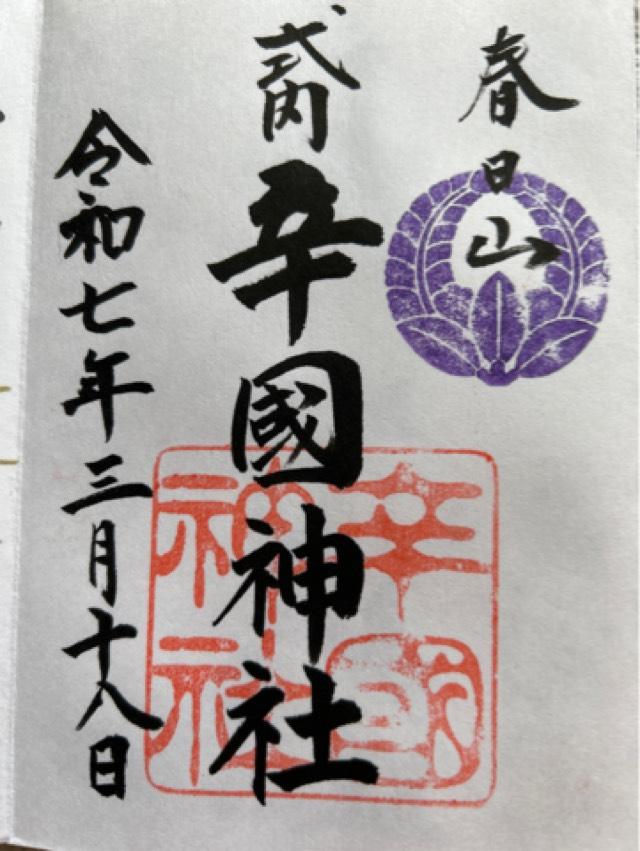 春日山
式内 辛國神社
令和七年三月十八日
辛國
神社